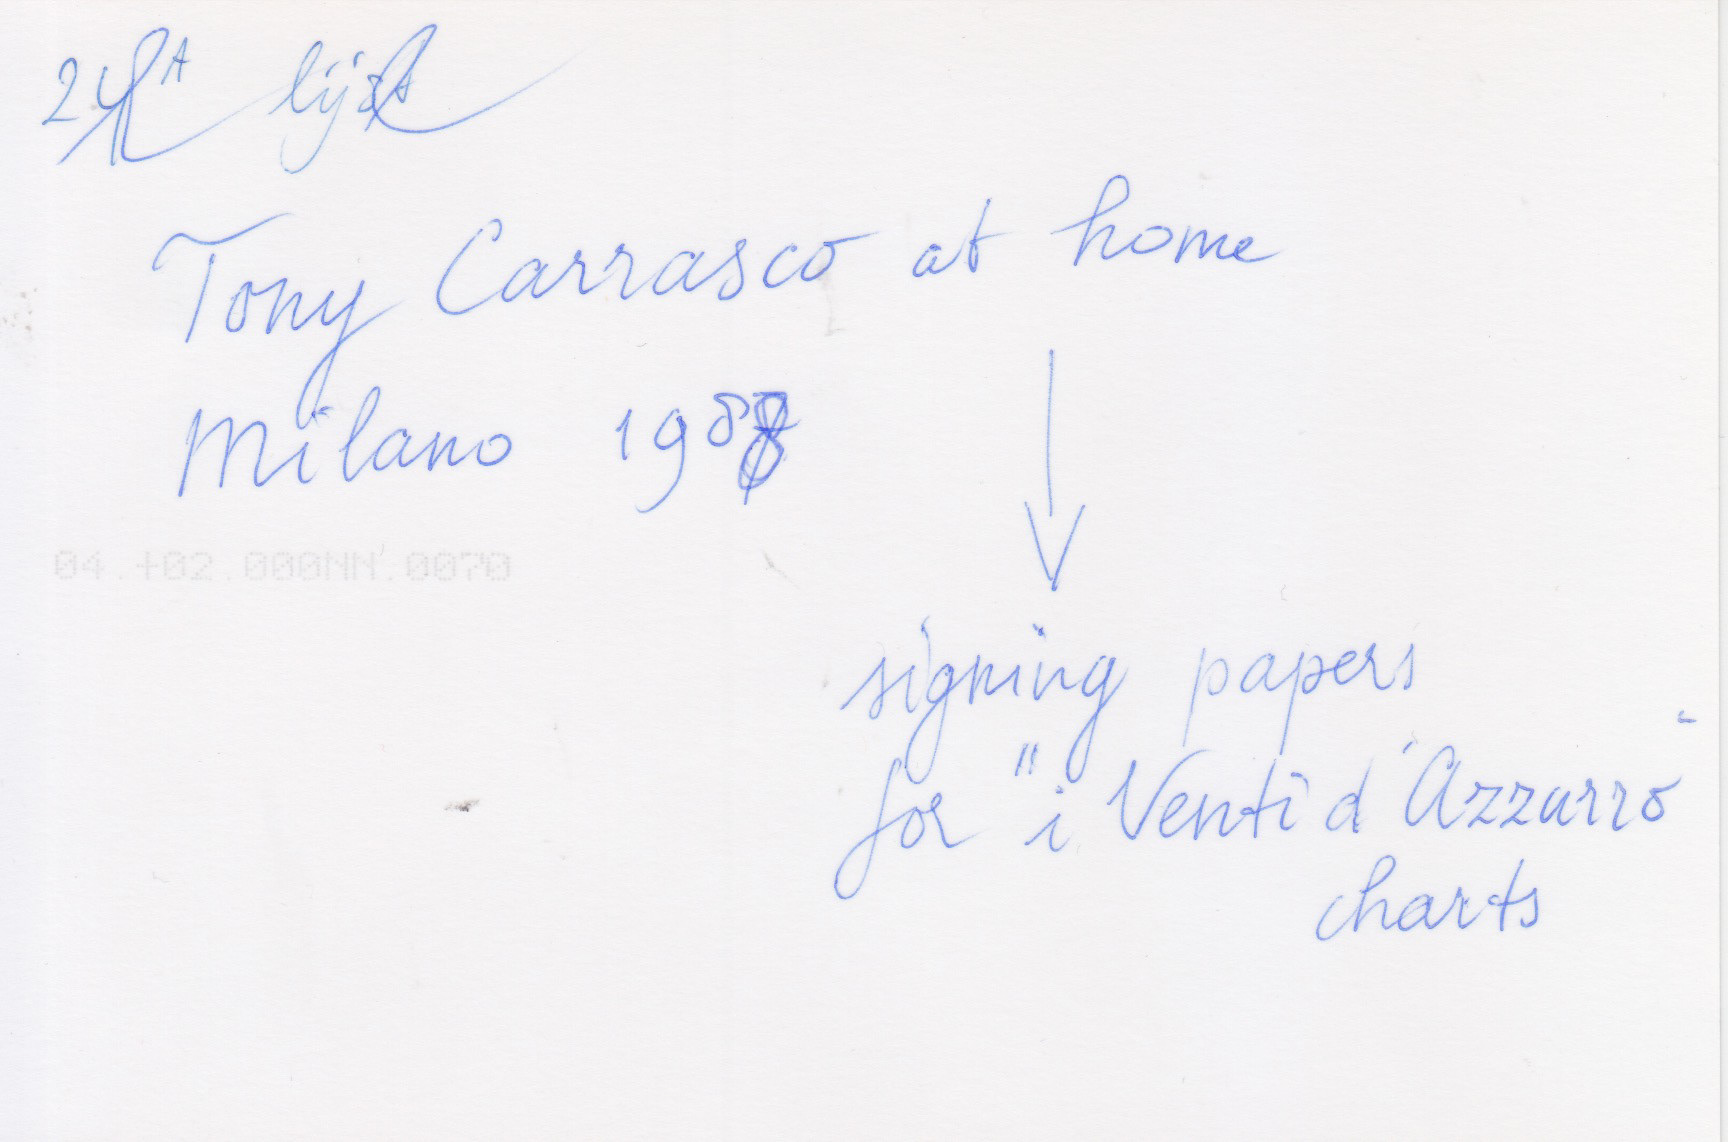 Tony Carrasco at home
Milano 198
signing papers
for "i Venti d'Azzurro"
charts
04.+02.000NN.0070